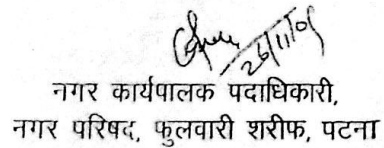 26/11/05
नगर कार्यपालक पदाधिकारी,
नगर परिषद, फुलवारी शरीफ, पटना